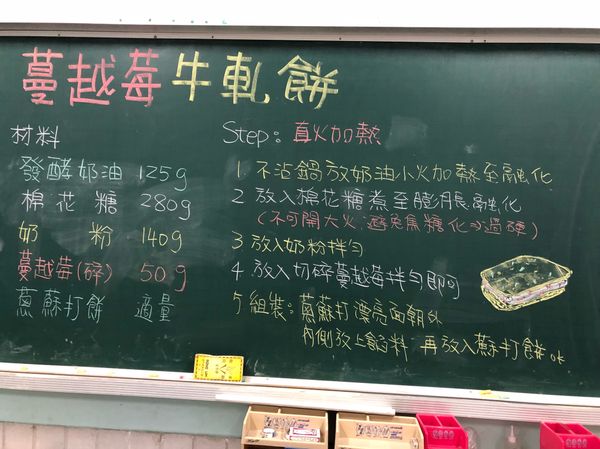 蔓越莓牛軋餅
材料
發酵奶油 125g
棉花糖 280g
奶粉 140g
蔓越莓(碎) 50g
蔥蘇打餅 適量
Step: 直火加熱
1. 不沾鍋放奶油小火加熱至融化
2 放入棉花糖煮至膨脹融化
(不可開大火,避免焦糖化or過硬)
3 放入奶粉拌勻
4. 放入切碎蔓越莓拌勻即可
5 組裝: 蔥蘇打漂亮面朝外
內側放上餡料 再放入蘇打餅ok